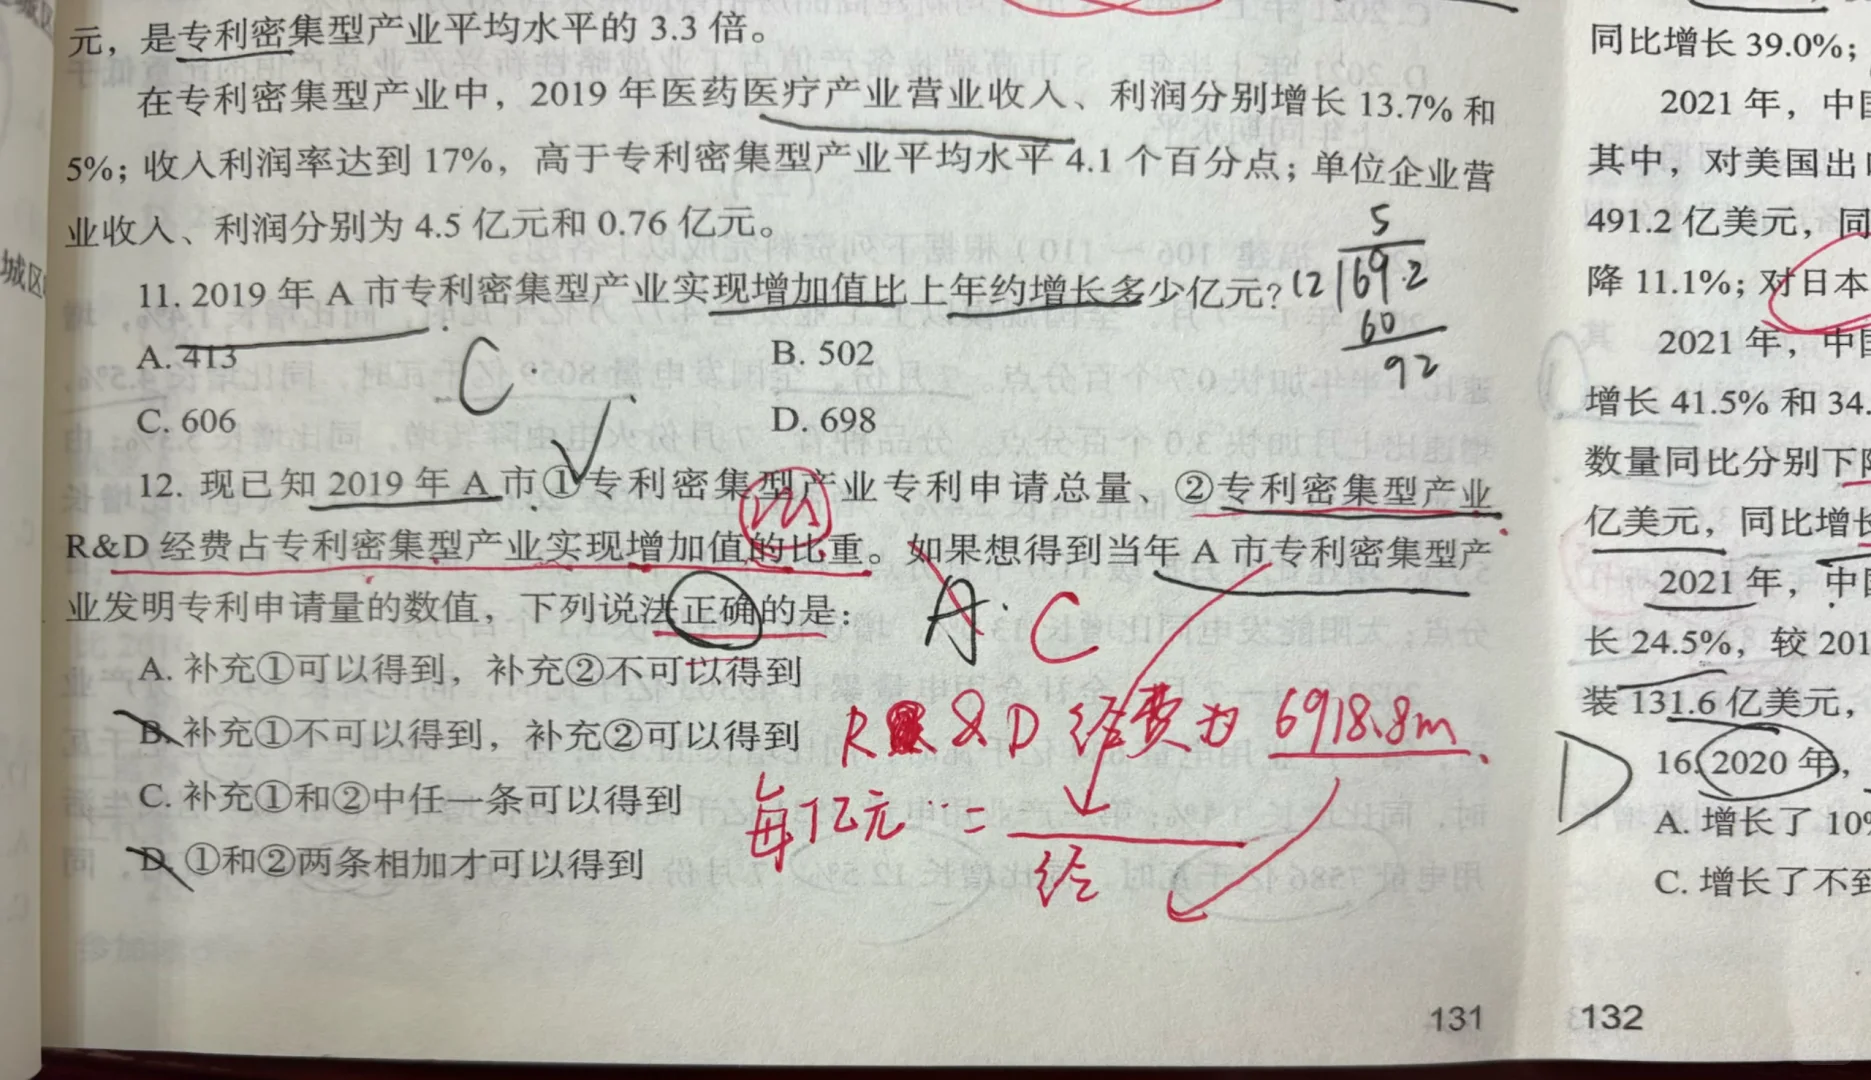 元，是专利密集型产业平均水平的 3.3 倍。
在专利密集型产业中，2019 年医药医疗产业营业收入、利润分别增长 13.7% 和
5%；收入利润率达到 17%，高于专利密集型产业平均水平 4.1 个百分点；单位企业营
业收入、利润分别为 4.5 亿元和 0.76 亿元。
11. 2019 年 A 市专利密集型产业实现增加值比上年约增长多少亿元？
5
12 169.2
60
92
A. 413
B. 502
C
C. 606
D. 698
12. 现已知 2019 年 A 市①专利密集型产业专利申请总量、②专利密集型产业
R&D 经费占专利密集型产业实现增加值的比重。如果想得到当年 A 市专利密集型产
业发明专利申请量的数值，下列说法正确的是：
A. C
A. 补充①可以得到，补充②不可以得到
B. 补充①不可以得到，补充②可以得到
R & D 经费为 6918.8m
C. 补充①和②中任一条可以得到
每1亿元 … =
经
D. ①和②两条相加才可以得到
131
同比增长 39.0%；
2021 年，中国
其中，对美国出口
491.2 亿美元，同
降 11.1%；对日本
2021 年，中国
增长 41.5% 和 34.
数量同比分别下降
亿美元，同比增长
2021 年，中国
长 24.5%，较 201
装 131.6 亿美元，
D
16. 2020 年，
A. 增长了 10%
C. 增长了不到
132